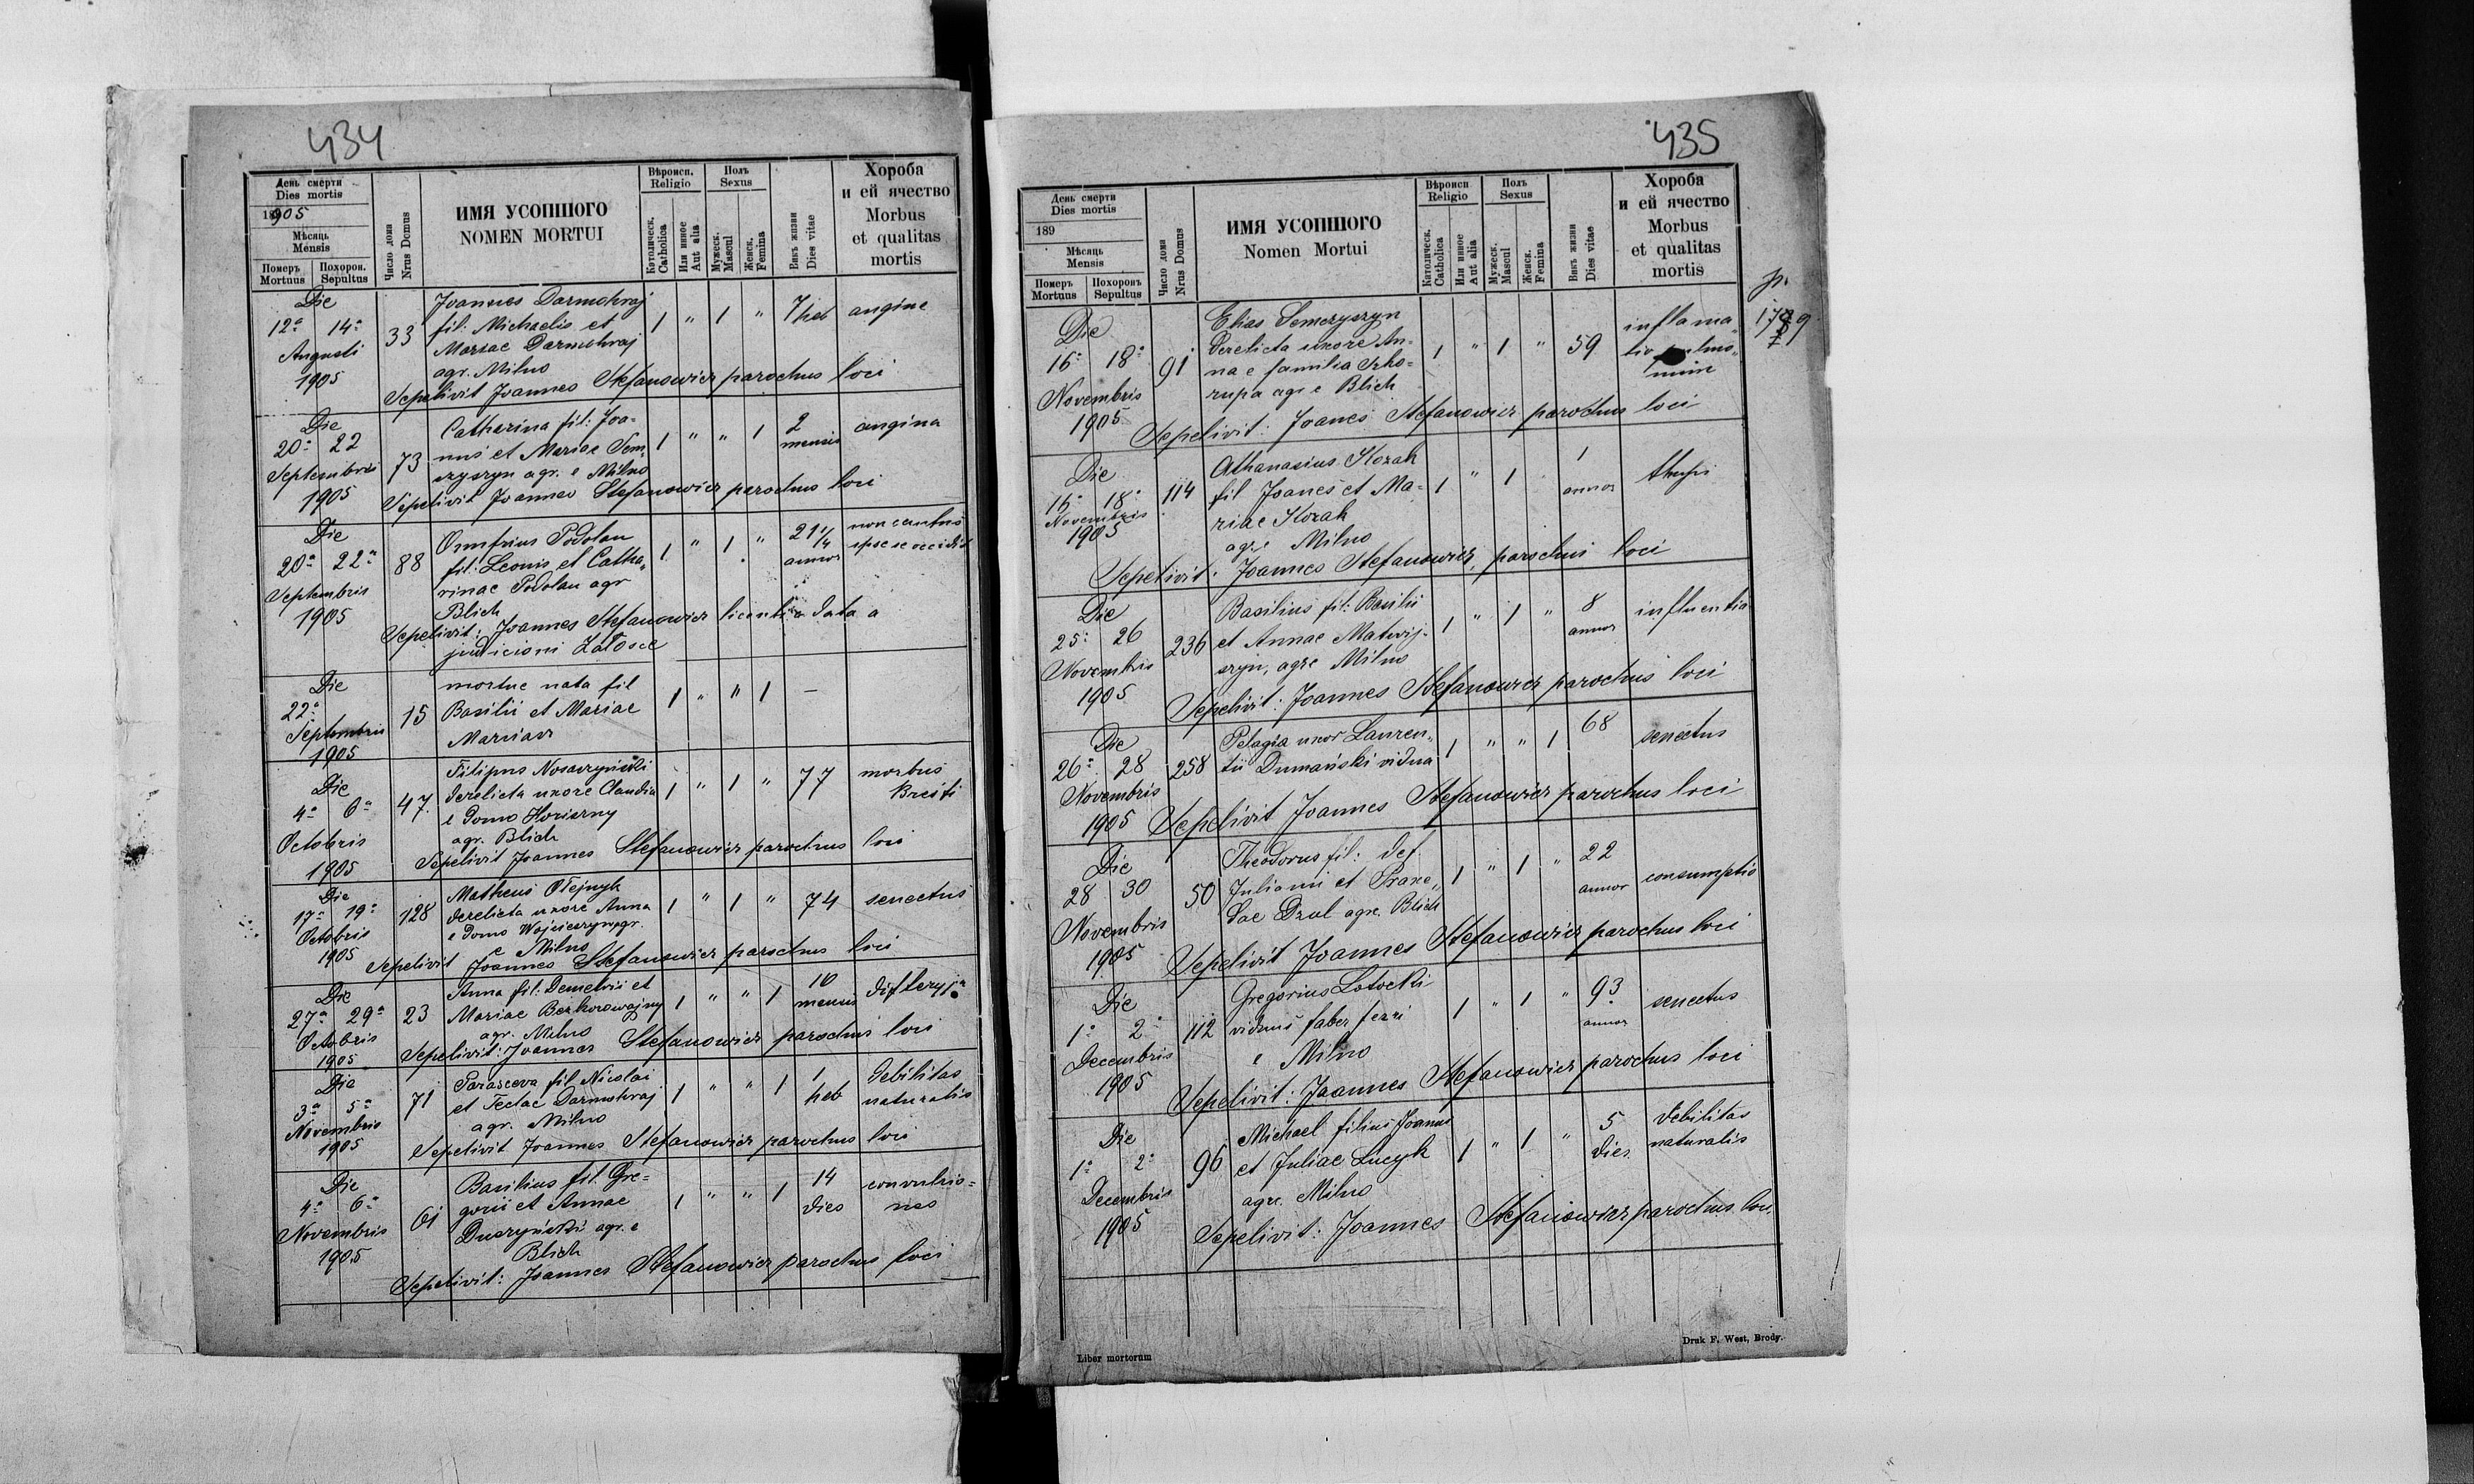 434
День смерти
Dies mortis
1905
Мѣсяць
Mensis
Померъ Похорон.
Mortuus Sepultus
Число дома
Nrus Domus
ИМЯ УСОПШОГО
NOMEN MORTUI
Вѣроисп.
Religio
Католическ.
Catholica
Или инное
Aut alia
Полъ
Sexus
Мужеск.
Mascul
Женск.
Femina
Вѣкъ жизни
Dies vitae
Хороба
и ей ячество
Morbus
et qualitas
mortis
Die
12ª 14ª
Augusti
1905
33
Joannes Darmohraj
fil: Michaelis et
Mariae Darmohraj
agr. Milno
1 " 1 " 7 heb angina
Sepelivit Joannes Stefanowicz parochus loci
Die
20ª 22
Septembris
1905
73
Catharina fil: Joa-
nnis et Mariae Sem
czyszyn agr. e Milno
1 " " 1 2 mensis angina
Sepelivit Joannes Stefanowicz parochus loci
Die
20ª 22ª
Septembris
1905
88
Onufrius Podolan
fil: Leonis et Catha„
rinae Podolan agr
Blich
1 " 1 " 21 1/4 annor
ipse se occidit
Sepelivit: Joannes Stefanowicz licentia data a
judicioni Załosce
Die
22ª
Septembris
1905
15
mortue nata fil
Basilii et Mariae
1 " " 1 –
Die
4ª 6ª
Octobris
1905
47
Filipus Nosaczyński
derelicta uxore Claudia
e domo
agr. Blich
1 " 1 " 77 morbus
Breiti
Sepelivit Joannes Stefanowicz parochus loci
Die
17ª 19ª
Octobris
1905
128
Matheus Olejnyk
derelicta uxore Anna
e domo
e Milno
1 " 1 " 74 senectus
Sepelivit Joannes Stefanowicz parochus loci
Die
27ª 29ª
Octobris
1905
23
Anna fil: Demetrii et
Mariae Bezkorowajny
agr. Milno
1 " " 1 10 mensis difteryja
Sepelivit: Joannes Stefanowicz parochus loci
Die
3ª 5ª
Novembris
1905
71
Parasceva fil Nicolai
et Teclae Darmohraj
agr. Milno
1 " " 1 1 heb debilitas
naturalis
Sepelivit Joannes Stefanowicz parochus loci
Die
4ª 6ª
Novembris
1905
61
Basilius fil. Gre-
gorii et Annae
Duczyński agr. e
Blich
1 " " 1 14 dies convulsio-
nes
Sepelivit: Joannes Stefanowicz parochus loci
435
День смерти
Dies mortis
189
Мѣсяць
Mensis
Померъ Похоронъ
Mortuus Sepultus
Число дома
Nrus Domus
ИМЯ УСОПШОГО
Nomen Mortui
Вѣроисп
Religio
Католическ.
Catholica
Или инное
Aut alia
Полъ
Sexus
Мужеск.
Mascul
Женск.
Femina
Вѣкъ жизни
Dies vitae
Хороба
и ей ячество
Morbus
et qualitas
mortis
Die
16ª 18ª
Novembris
1905
91
Elias Semczyszyn
derelicta uxore An-
na e familia Szko-
rupa agr e Blich
1 " 1 " 59 inflama„
tio pulmo„
num
Sepelivit: Joanes Stefanowicz parochus loci
Die
16ª 18ª
Novembris
1905
114
Athanasius Kozak
fil Joanes et Ma-
riae Kozak
agr e Milno
1 " 1 1 annor
Sepelivit: Joannes Stefanowicz, parochus loci
Die
25ª 26
Novembris
1905
236
Basilius fil: Basilii
et Annae Matwij-
szyn, agr e Milno
1 " 1 " 8 annor influentia
Sepelivit: Joannes Stefanowicz parochus loci
Die
26ª 28
Novembris
1905
258
Pelagia uxor Lauren„
tii Dumański vidua
1 " " 1 68 senectus
Sepelivit Joannes Stefanowicz parochus loci
Die
28 30
Novembris
1905
50
Theodorus fil: def.
Julianni et Praxe„
dae Dzul agr e. Blich
1 " 1 " 22 annor consumptio
Sepelivit Joannes Stefanowicz parochus loci
Die
1ª 2ª
Decembris
1905
112
Gregorius Łotocki
viduus faber ferri
e Milno
1 " 1 " 93 annor senectus
Sepelivit: Joannes Stefanowicz parochus loci
Die
1ª 2ª
Decembris
1905
96
Michael filius Joannis
et Juliae Lucyk
agr e. Milno
1 " 1 " 5 dies debilitas
naturalis
Sepelivit: Joannes Stefanowicz parochus loci
Liber mortorum
Druk F. West, Brody.